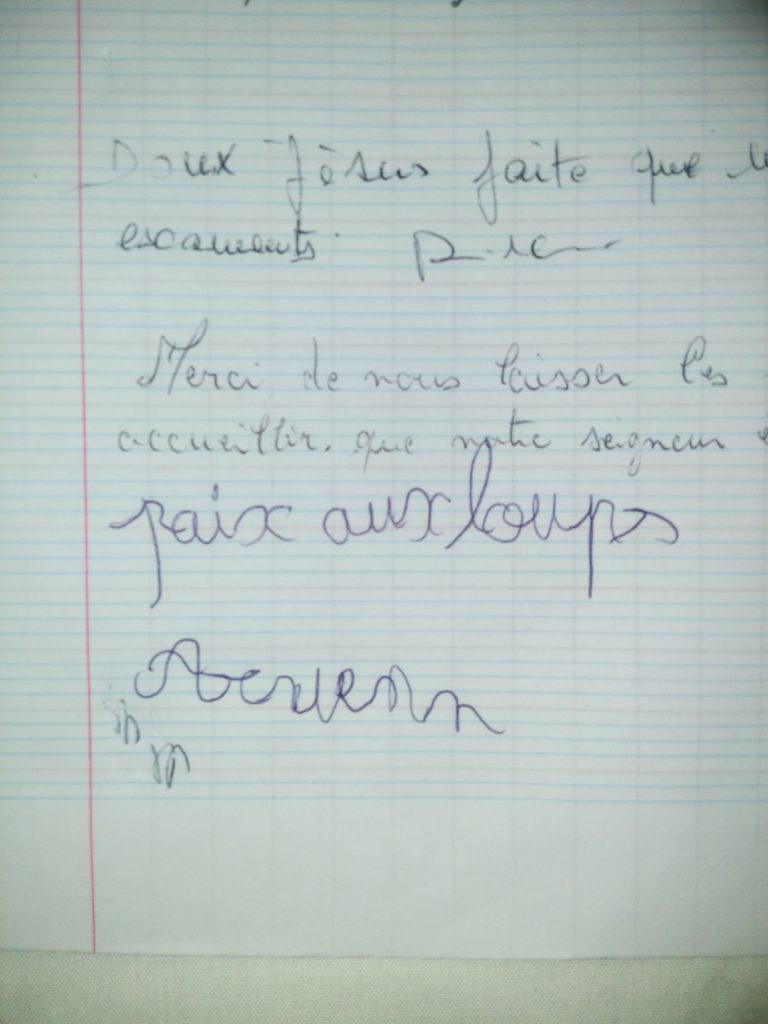 Doux Jésus faite que
escaments
Merci de nous laisser les
accueillir. que notre seigneur
paix aux loups